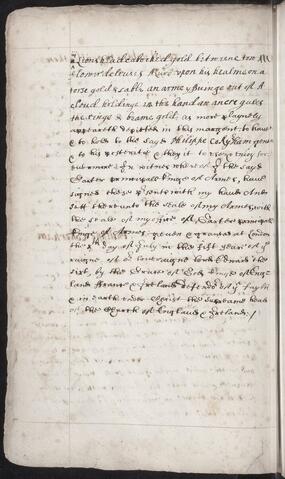 Lions head eatorsed gold betweene two
flowre deleuces Azure upon his healme on a
torse gold & sable an arme yssuinge out of A
cloud holdinge in the hand an ancre gules
the ringe & beame gold, as more playnely
appeareth depicted in this margent to haue
& to hold to the sayd Philippe gent
& to his posteritie & they it to
In witnes wherof I the sayd
Garter principall kinge of Armes, haue
signed these psents with my hand And
sett thereunto the seale of my Armes, with
the seale of my office of Garter principall
kinge of Armes, geuen & graunted at London
the day of July in the first yeare of ye
raigne of our soueraigne lord Edward the
sixt, by the Grace of God kinge of Eng-
land france & Ireland defendor of ye fayth
& in earth vnder Christ the supreame head
of the Church of England & Ireland /